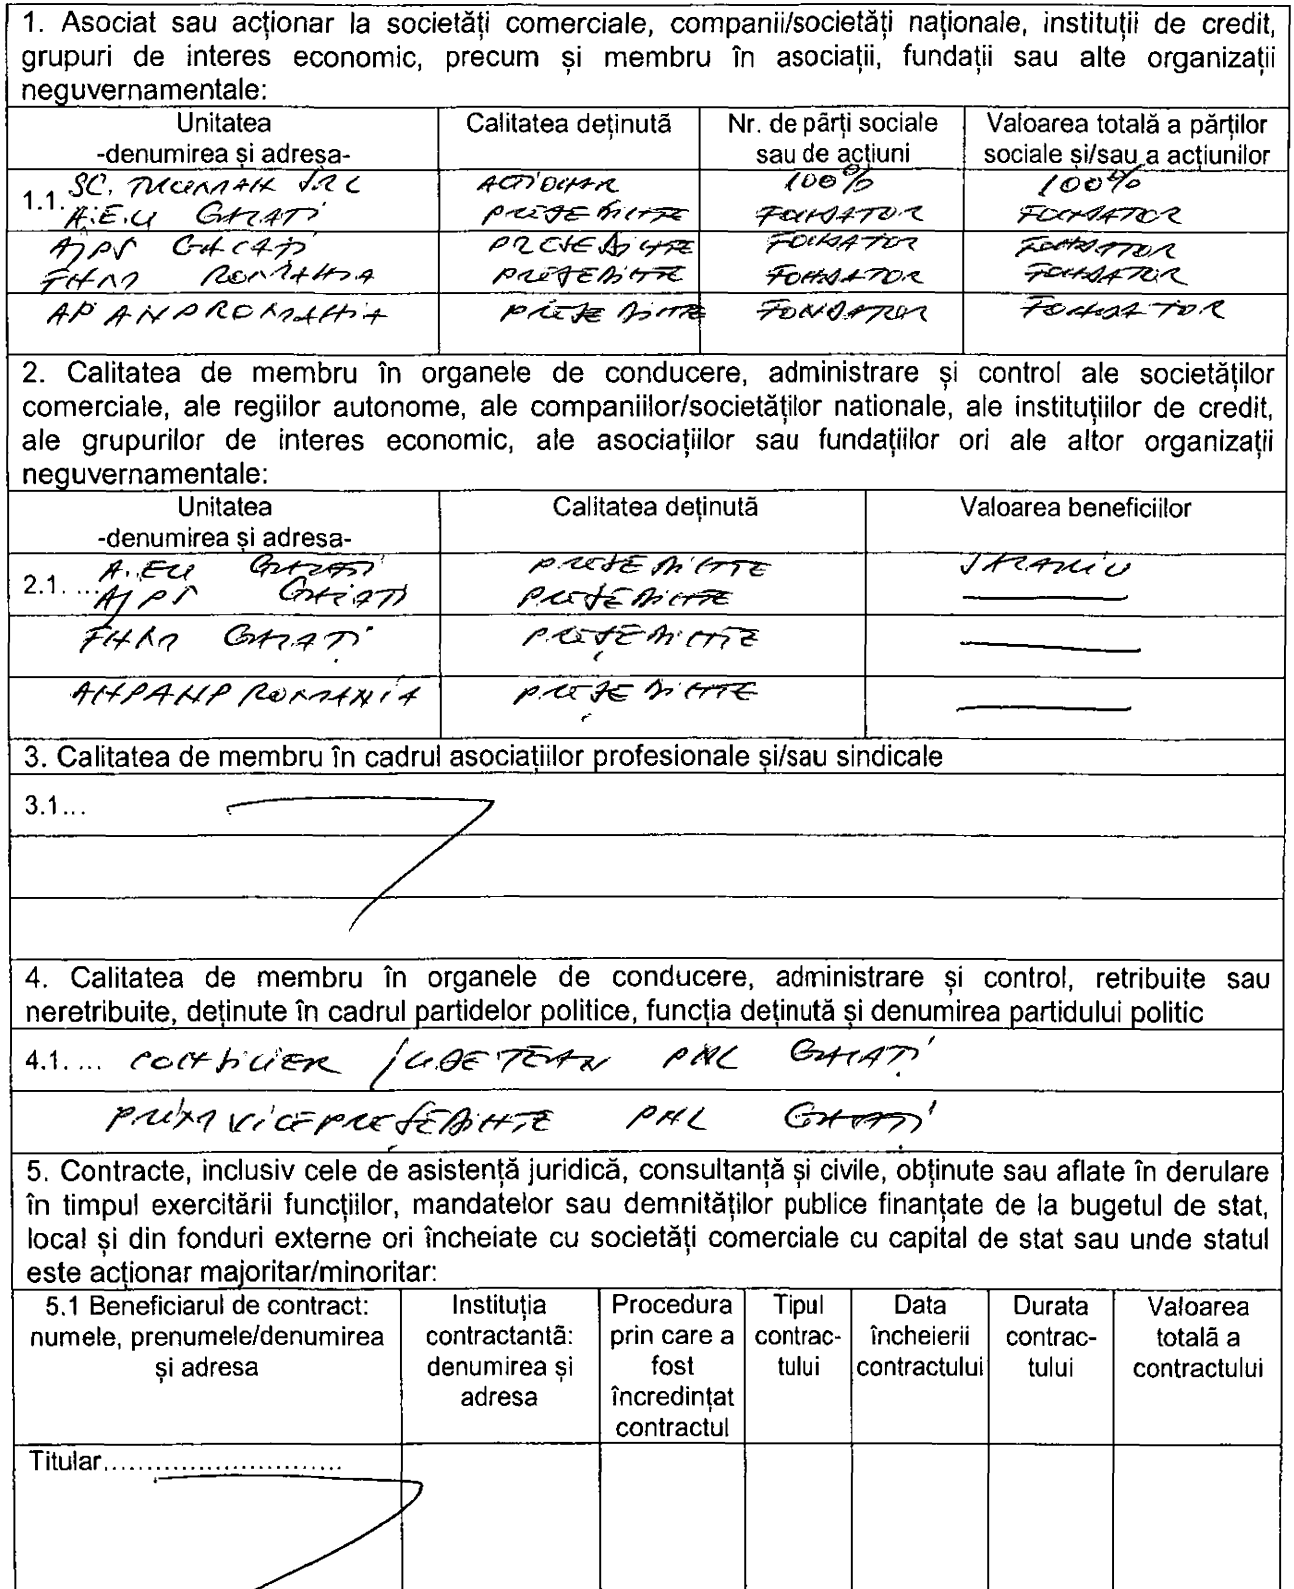 1. Asociat sau acționar la societăți comerciale, companii/societăți naționale, instituții de credit,
grupuri de interes economic, precum și membru în asociații, fundații sau alte organizații
neguvernamentale:
Unitatea
-denumirea și adresa-
Calitatea deținută
Nr. de părți sociale
sau de acțiuni
Valoarea totală a părților
sociale și/sau a acțiunilor
1.1. SC. SRL ACȚIONAR 100% 100%
A.E.U GALAȚI PREȘEDINTE FONDATOR FONDATOR
AJPS GALAȚI PREȘEDINTE FONDATOR FONDATOR
ROMANIA PREȘEDINTE FONDATOR FONDATOR
PREȘEDINTE FONDATOR FONDATOR
2. Calitatea de membru în organele de conducere, administrare și control ale societăților
comerciale, ale regiilor autonome, ale companiilor/societăților nationale, ale instituțiilor de credit,
ale grupurilor de interes economic, ale asociațiilor sau fundațiilor ori ale altor organizații
neguvernamentale:
Unitatea
-denumirea și adresa-
Calitatea deținută
Valoarea beneficiilor
2.1. ... A.EU GALAȚI PREȘEDINTE SALARIU
AJPS GALAȚI PREȘEDINTE
GALAȚI PREȘEDINTE
ROMANIA PREȘEDINTE
3. Calitatea de membru în cadrul asociațiilor profesionale și/sau sindicale
3.1...
4. Calitatea de membru în organele de conducere, administrare și control, retribuite sau
neretribuite, deținute în cadrul partidelor politice, funcția deținută și denumirea partidului politic
4.1. ... CONSILIER JUDETEAN PNL GALAȚI
PRIM VICEPREȘEDINTE PNL GALAȚI
5. Contracte, inclusiv cele de asistență juridică, consultanță și civile, obținute sau aflate în derulare
în timpul exercitării funcțiilor, mandatelor sau demnităților publice finanțate de la bugetul de stat,
local și din fonduri externe ori încheiate cu societăți comerciale cu capital de stat sau unde statul
este acționar majoritar/minoritar:
5.1 Beneficiarul de contract:
numele, prenumele/denumirea
și adresa
Instituția
contractantă:
denumirea și
adresa
Procedura
prin care a
fost
încredințat
contractul
Tipul
contrac-
tului
Data
încheierii
contractului
Durata
contrac-
tului
Valoarea
totală a
contractului
Titular............................